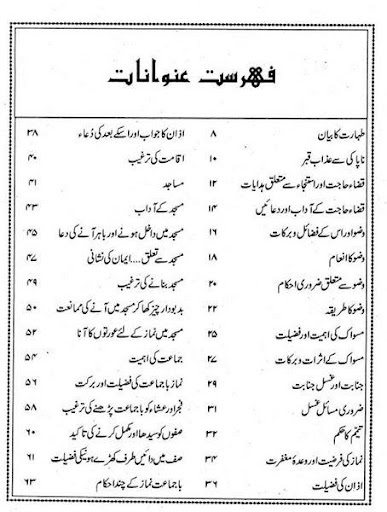 فہرست عنوانات
طہارت کا بیان ۸
ناپاکی سے عذاب قبر ۱۰
قضاء حاجت اور استنجاء سے متعلق ہدایات ۱۲
قضاء حاجت کے آداب اور دعائیں ۱۴
وضو اور اس کے فضائل و برکات ۱۶
وضو کا انعام ۱۸
وضو سے متعلق ضروری احکام ۲۰
وضو کا طریقہ ۲۲
مسواک کی اہمیت اور فضیلت ۲۵
مسواک کے اثرات و برکات ۲۷
جنابت اور غسل جنابت ۲۹
ضروری مسائل غسل ۳۱
تیمّم کا حکم ۳۲
نماز کی فرضیت اور وعدۂ مغفرت ۳۴
اذان کی فضیلت ۳۶
اذان کا جواب اور اسکے بعد کی دُعاء ۳۸
اقامت کی ترغیب ۴۰
مساجد ۴۱
مسجد کے آداب ۴۳
مسجد میں داخل ہونے اور باہر آنے کی دعا ۴۵
مسجد سے تعلق.... ایمان کی نشانی ۴۷
مسجد بنانے کی ترغیب ۴۹
بدبودار چیز کھا کر مسجد میں آنے کی ممانعت ۵۰
مسجد میں نماز کے لئے عورتوں کا آنا ۵۲
جماعت کی اہمیت ۵۴
نماز باجماعت کی فضیلت اور برکت ۵۶
فجر اور عشاء کو باجماعت پڑھنے کی ترغیب ۵۸
صفوں کو سیدھا اور مکمل کرنے کی تاکید ۶۰
صف میں دائیں طرف کھڑے ہونیکی فضیلت ۶۱
باجماعت نماز کے چند احکام ۶۳